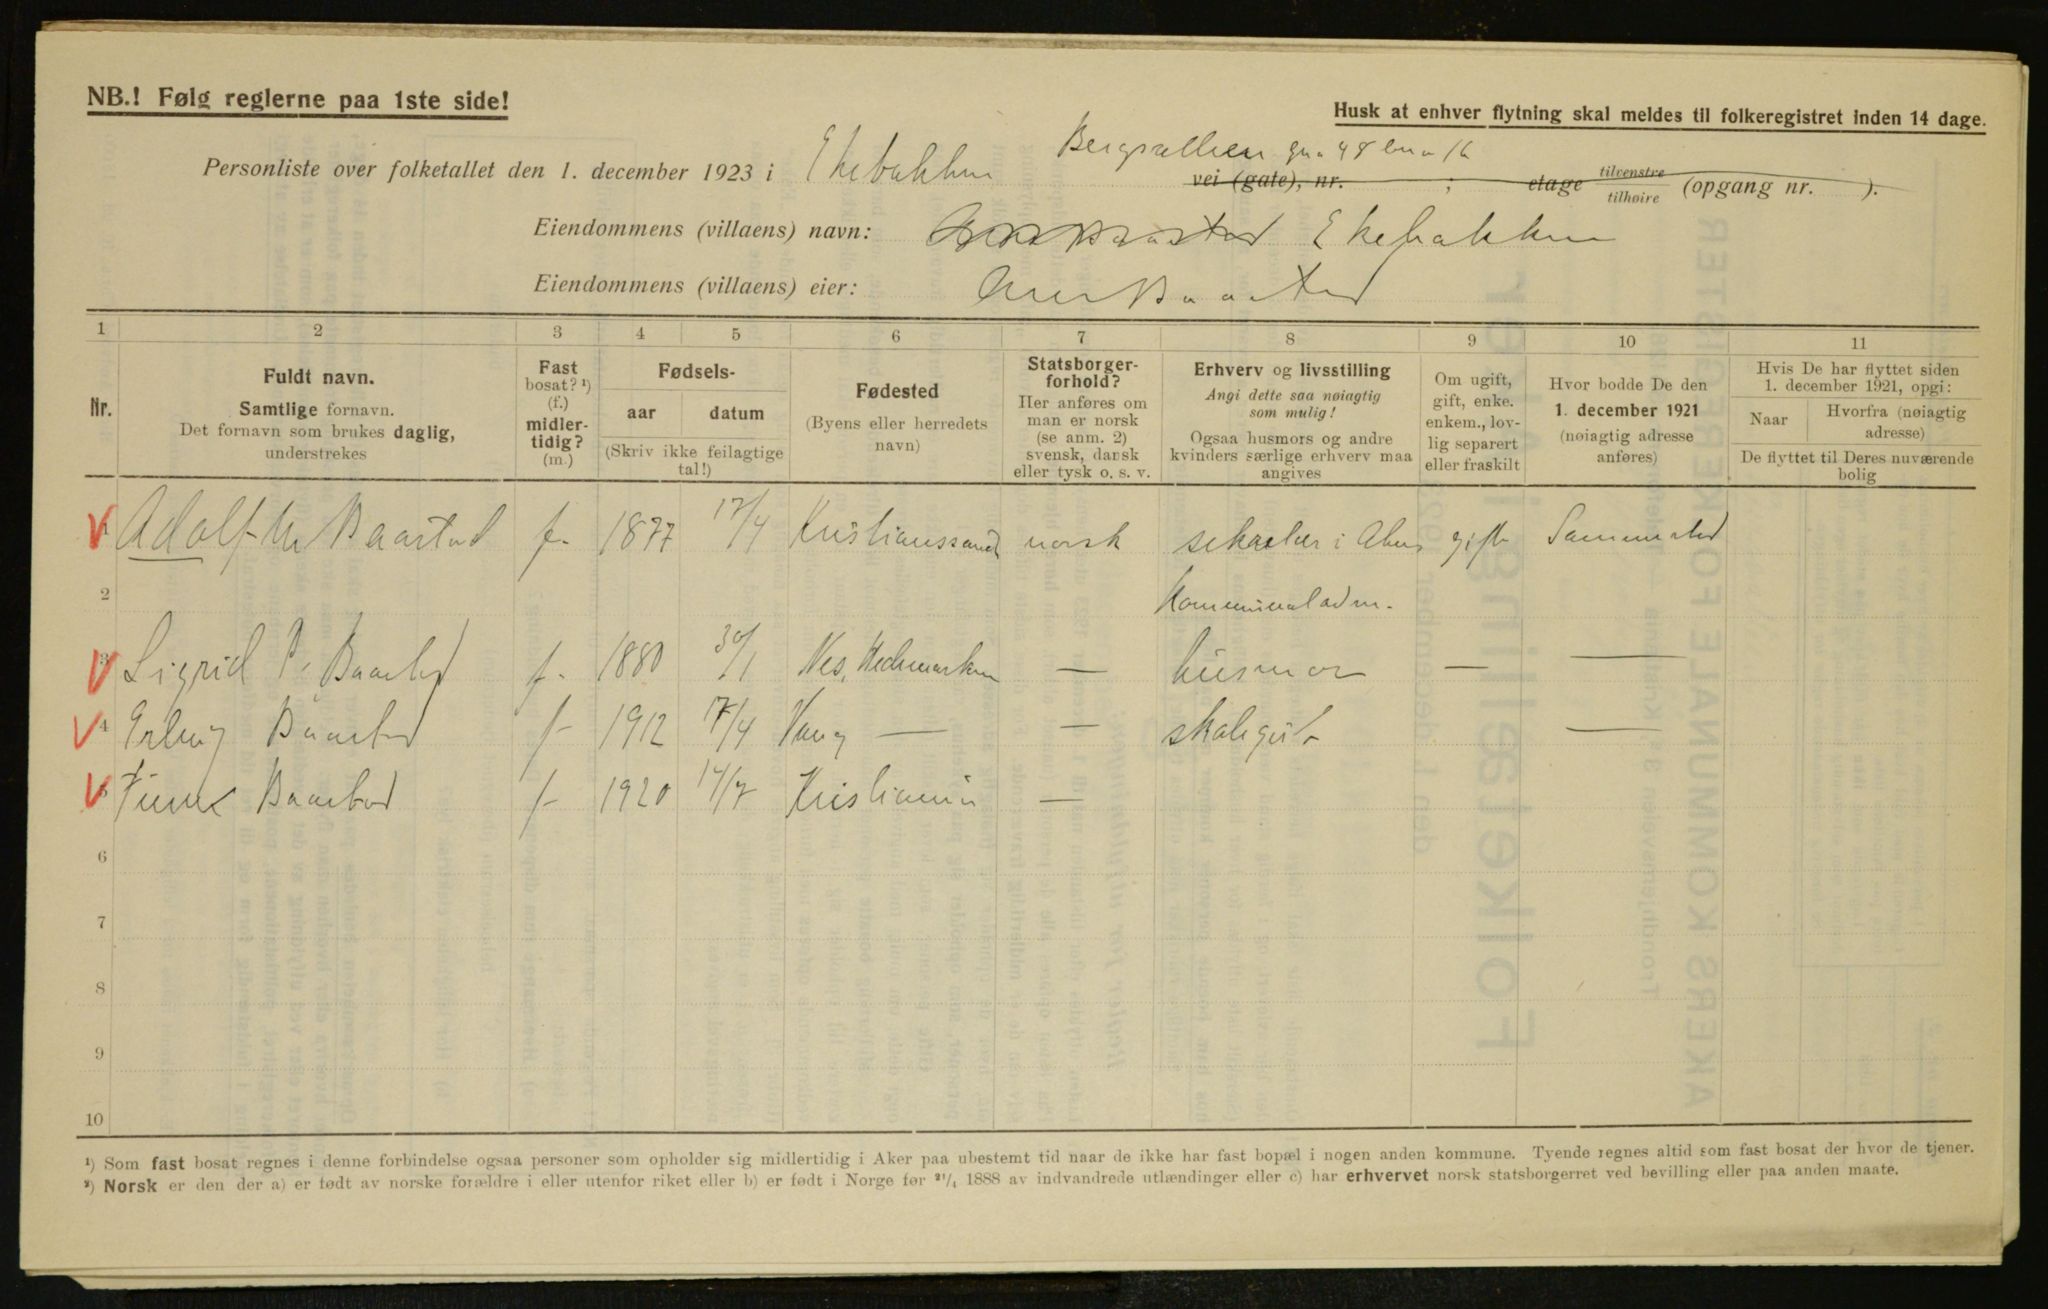 NB.! Følg reglerne paa 1ste side!
Husk at enhver flytning skal meldes til folkeregistret inden 14 dage.
Personliste over folketallet den 1. december 1923 i Ekebakken vei (gate), nr. ; etage tilvenstre tilhøire (opgang nr. ).
Eiendommens (villaens) navn: Ekebakken
Eiendommens (villaens) eier: Baastad
1 2 3 4 5 6 7 8 9 10 11
Nr.
Fuldt navn.
Samtlige fornavn.
Det fornavn som brukes daglig,
understrekes
Fast
bosat? ¹)
(f.)
midler-
tidig?
(m.)
Fødsels-
aar datum
(Skriv ikke feilagtige
tal!)
Fødested
(Byens eller herredets
navn)
Statsborger-
forhold?
Her anføres om
man er norsk
(se anm. 2)
svensk, dansk
eller tysk o. s. v.
Erhverv og livsstilling
Angi dette saa nøiagtig
som mulig!
Ogsaa husmors og andre
kvinders særlige erhverv maa
angives
Om ugift,
gift, enke.
enkem., lov-
lig separert
eller fraskilt
Hvor bodde De den
1. december 1921
(nøiagtig adresse
anføres)
Hvis De har flyttet siden
1. december 1921, opgi:
Naar Hvorfra (nøiagtig
adresse)
De flyttet til Deres nuværende
bolig
Adolf Baastad f. 1877 17/4 Kristianssand norsk sekretær i Akers gift Sammested
2 Kommunaladm.
3 Sigrid P. Baastad f. 1880 30/1 Nes, Hedmarken — husmor — —
4 Erling Baastad f 1912 17/4 Vang — — skolegut —
5 Finn Baastad f 1920 14/7 Kristiania —
6
7
8
9
10
¹) Som fast bosat regnes i denne forbindelse ogsaa personer som opholder sig midlertidig i Aker paa ubestemt tid naar de ikke har fast bopæl i nogen anden kommune. Tyende regnes altid som fast bosat der hvor de tjener.
²) Norsk er den der a) er født av norske forældre i eller utenfor riket eller b) er født i Norge før ²¹/₄ 1888 av indvandrede utlændinger eller c) har erhvervet norsk statsborgerret ved bevilling eller paa anden maate.